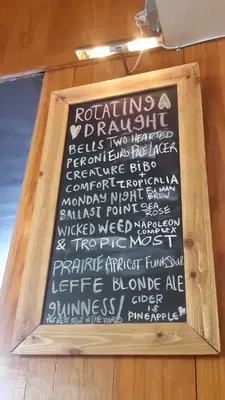 ROTATING
DRAUGHT
BELLS TWO HEARTED
PERONI EURO PALE LAGER
CREATURE BIBO
COMFORT + TROPICALIA
MONDAY NIGHT
BREW
BALLAST POINT SEA
ROSE
WICKED WEED NAPOLEON
COMPLEX
& TROPICMOST
PRAIRIE APRICOT FUNKSOUR
LEFFE BLONDE ALE
GUINNESS! CIDER
IS
THE BEST BEER IN THE WORLD PINEAPPLE